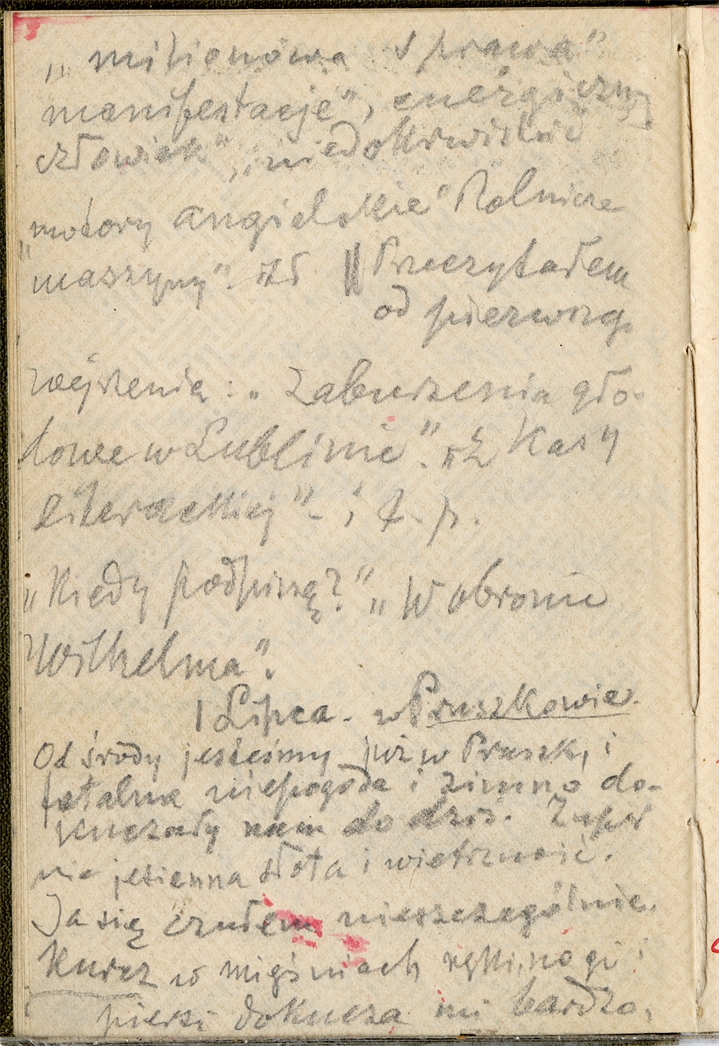 „milionowa sprawa"
manifestacje", energiczny
człowiek", „niedokrwistnie
motory angielskie" Rolnicze
„maszyny". itd || Przeczytałem
od pierwszeg.
wejrzenia: „Zaburzenia gło-
dowe w Lublinie". „Z Kasy
literackiej" - i t. p.
„Kiedy podpiszą?" „W obronie
Wilhelma".
1 Lipca - w Pruszkowie.
Od środy jesteśmy już w Pruszk. i
fatalna niepogoda i zimno do-
kuczały nam do dziś. Zupeł
nie jesienna słota i wietrzność.
Ja się czułem nieszczególnie.
Kurcz w mięśniach ręki, nogi i
piersi dokucza mi bardzo,